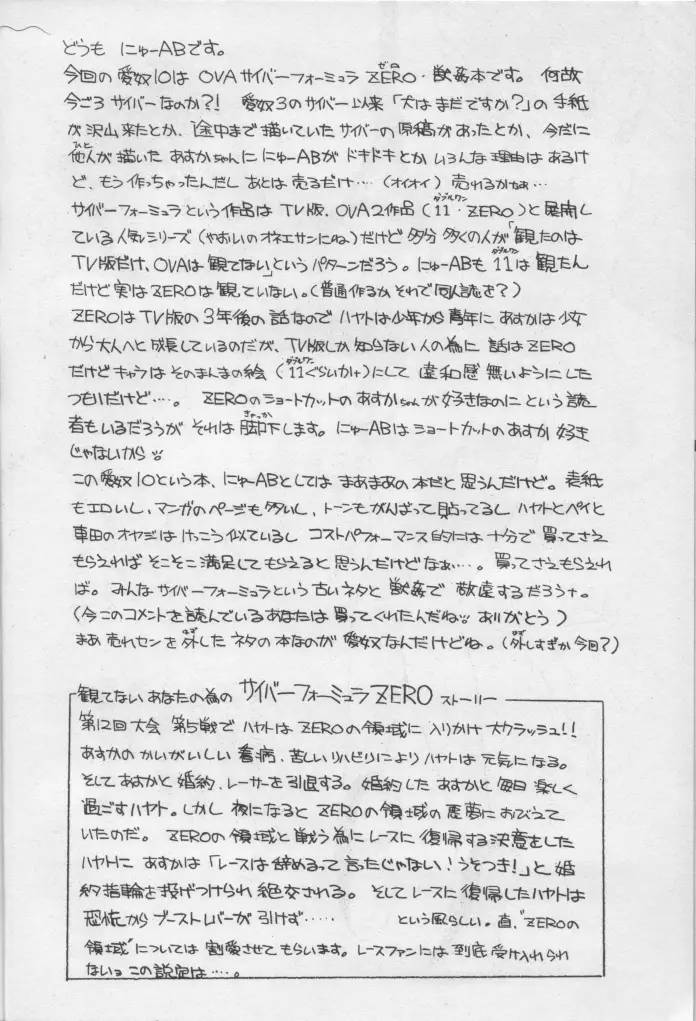 どうも にゅーABです。
今回の愛奴10は OVAサイバーフォーミュラ ZERO・獣姦本です。 何故
今ごろサイバーなのか?! 愛奴3のサイバー以来「犬はまだですか?」の手紙
が沢山来たとか、途中まで描いていたサイバーの原稿があったとか、今だに
他人が描いた あすかちゃんに にゅーABが ドキドキとか いろんな理由はあるけ
ど、もう作っちゃったんだし あとは売るだけ‥‥ (オイオイ) 売れるかなぁ…
サイバーフォーミュラという作品は TV版、OVA2作品 (11・ZERO)と展開し
ている人気シリーズ (やおいのオネエサンにね)だけど多分 多くの人が「観たのは
TV版だけ、OVAは観てない」というパターンだろう。にゅーABも 11は観たん
だけど実はZEROは観ていない。(普通作るか それで同人誌を?)
ZEROはTV版の3年後の話なので ハヤトは少年から青年に あすかは少女
から大人へと成長しているのだが、TV版しか知らない人の為に 話はZERO
だけどキャラは そのまんまの絵 (11ぐらいか+)にして 違和感 無いようにした
つもりだけど‥‥。 ZEROのショートカットのあすかちゃんが好きなのに という読
者もいるだろうが それは却下します。にゅーABはショートカットのあすか 好き
じゃないから
この愛奴10という本、にゅーABとしては まあまあの本だと思うんだけど。表紙
もエロいし、マンガのページも多いし、トーンもがんばって貼ってるし ハヤトとペイと
車田のオヤジは けっこう似ているし コストパフォーマンス的には十分で 買ってさえ
もらえれば そこそこ満足してもらえると思うんだけどなぁ‥‥。買ってさえもらえれ
ば。みんな サイバーフォーミュラという 古いネタと 獣姦で 敬遠するだろうナ。
(今このコメントを読んでいるあなたは 買ってくれたんだね ありがとう)
まあ 売れセンを外した ネタの本なのが 愛奴なんだけどね。(外しすぎか 今回?)
観てない あなたの為の サイバーフォーミュラ ZERO ストーリー
第12回大会 第5戦で ハヤトは ZEROの領域に 入りかけ 大クラッシュ!!
あすかのかいがいしい 看病、苦しいリハビリにより ハヤトは 元気になる。
そして あすかと 婚約、レーサーを引退する。 婚約した あすかと毎日 楽しく
過ごすハヤト。しかし 夜になると ZEROの領域の悪夢におびえて
いたのだ。 ZEROの領域と戦う為にレースに復帰する決意をした
ハヤトに あすかは「レースは辞めるって言ったじゃない!うそつき!」と 婚
約指輪を投げつけられ 絶交される。 そしてレースに復帰したハヤトは
恐怖からブーストレバーが引けず‥‥‥ という風らしい。直、"ZEROの
領域"については 割愛させてもらいます。レースファンには 到底 受け入れられ
ない この設定は‥‥。